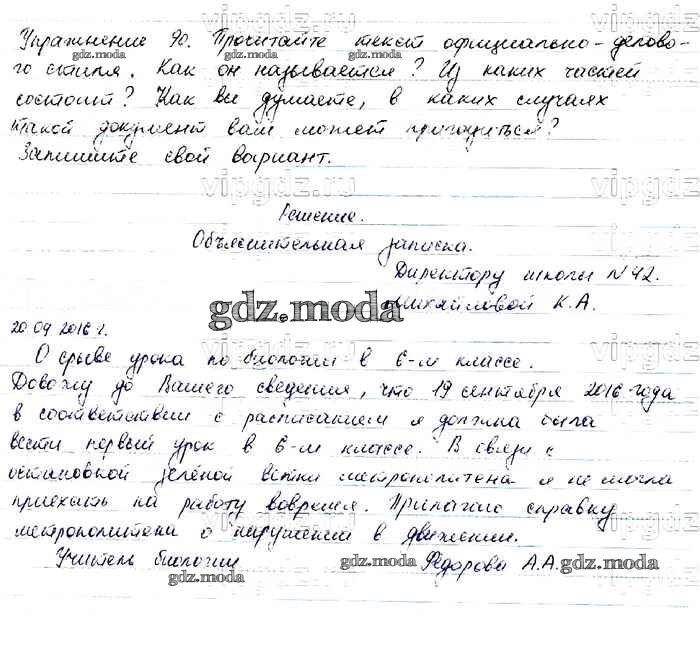 Упражнение 90. Прочитайте текст официально-делово-
го стиля. Как он называется? Из каких частей
состоит? Как вы думаете, в каких случаях
такой документ вам может пригодиться?
Запишите свой вариант.
Решение.
Объяснительная записка.
Директору школы N 42.
Михайловой К.А.
20.09 2016 г.
О срыве урока по биологии в 6-м классе.
Довожу до Вашего сведения, что 19 сентября 2016 года
в соответствии с расписанием я должна была
вести первый урок в 6-м классе. В связи с
остановкой зелёной ветки метрополитена я не могла
приехать на работу вовремя. Прилагаю справку
метрополитена о нарушении в движении.
Учитель биологии Фёдорова А.А.
vipgdz.ru
gdz.moda